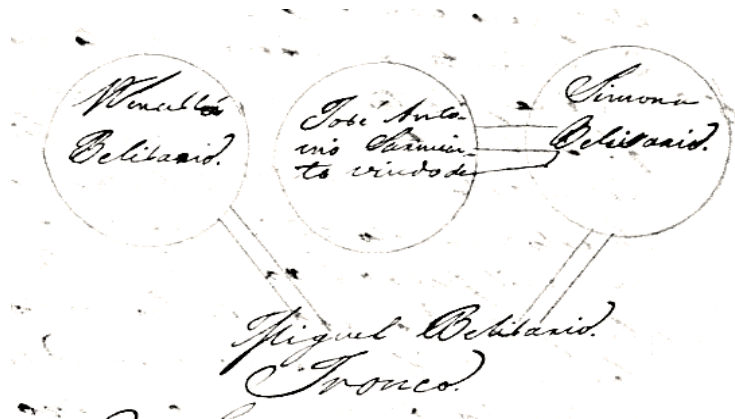 Wenceslao
Belisario.
José Anto-
nio Sarmien-
to viudo de
Simona
Belissario.
Miguel Belisario.
Tronco.